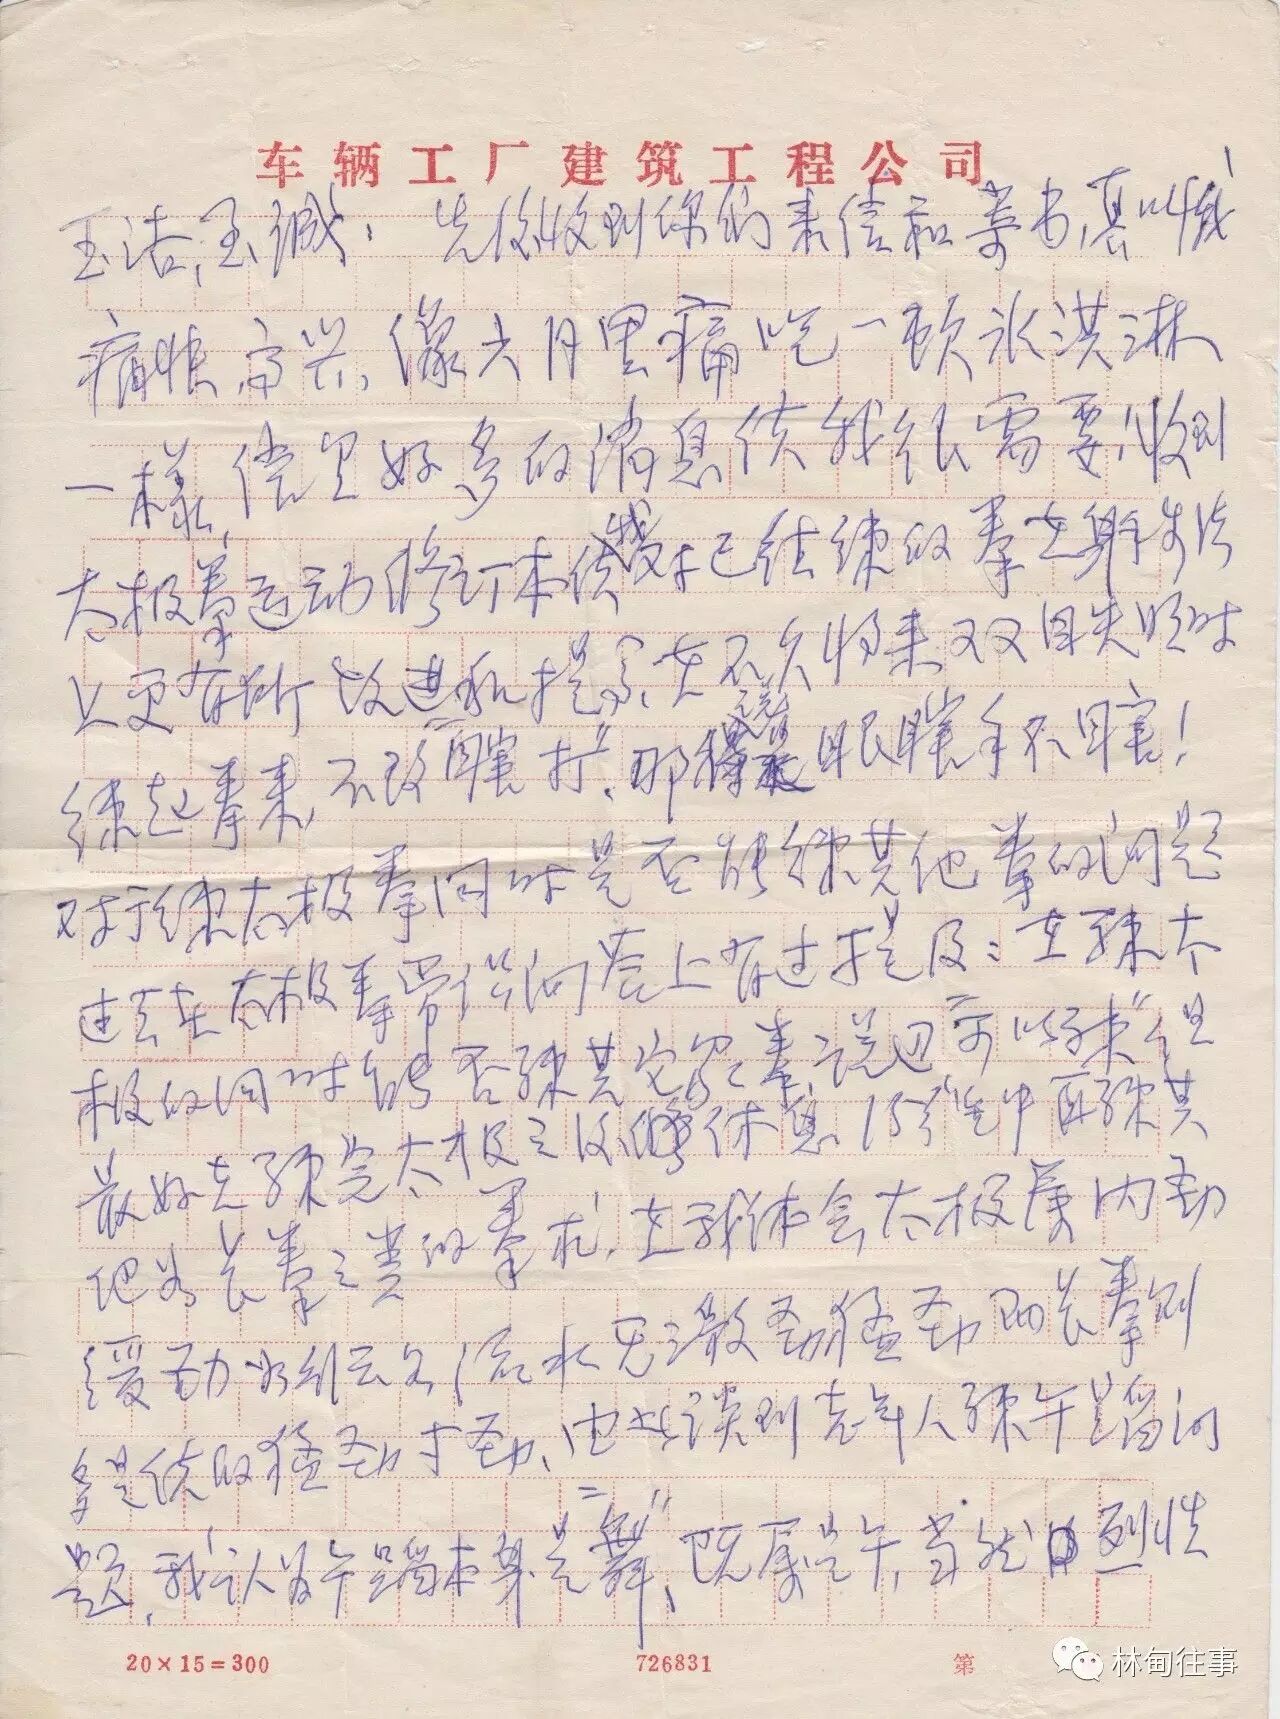 车辆工厂建筑工程公司
玉洁，玉诚：先后收到你们的来信和寄书，真叫我
痛快，高兴，像六月里痛吃一顿冰淇淋
一样，信里好多的消息使我很需要，收到
太极拳运动修订本使我对已经练的拳在身手步法
上更有所改进和提高，在不久将来双目失明时
练起拳来，不致“瞎打”，那眼瞎手不瞎！
对于练太极拳同时是否能练其他拳的问题
过去在太极拳常识问答上有过提及：在练太
极的同时能否练其它拳，说过可以练“但
最好先练完太极之后休息15分钟再练其
他如长拳之类的拳术，在我体会太极属内劲
缓劲如行云如流水无散劲猛劲而长拳则
多是使的猛劲寸劲、由此谈到老年人练午蹈问
题，我认为午蹈本身是“舞”，既属是午，当然烈性
20×15=300
726831
第
林甸往事